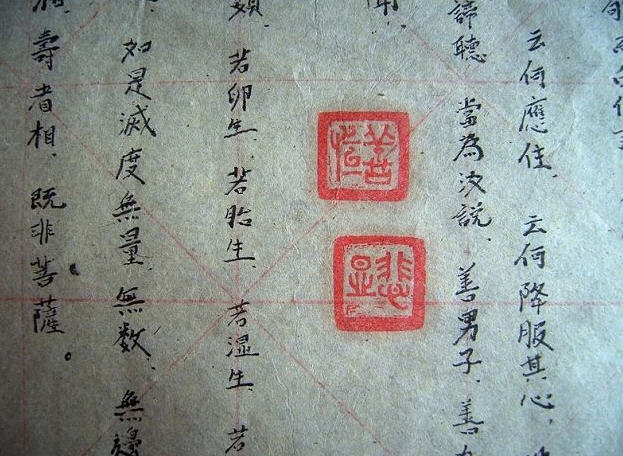 云何應住、云何降服其心、
諦聽 當為汝說、善男子、善
若卵生、若胎生、若湿生、若
如是滅度無量、無数、無邊
相、壽者相、既非菩薩。